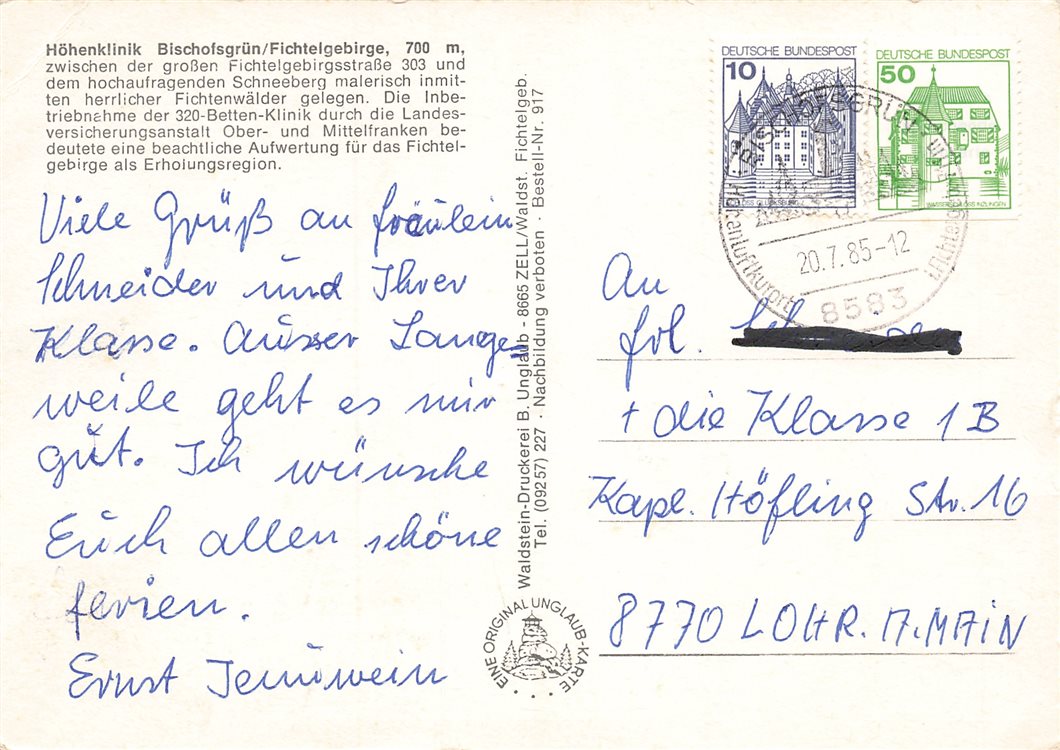 Höhenklinik Bischofsgrün/Fichtelgebirge, 700 m,
zwischen der großen Fichtelgebirgsstraße 303 und
dem hochaufragenden Schneeberg malerisch inmit-
ten herrlicher Fichtenwälder gelegen. Die Inbe-
triebnahme der 320-Betten-Klinik durch die Landes-
versicherungsanstalt Ober- und Mittelfranken be-
deutete eine beachtliche Aufwertung für das Fichtel-
gebirge als Erholungsregion.
Viele Grüß an fräulein
Schneider und Ihrer
Klasse. Ausser Lange-
weile geht es mir
gut. Ich wünsche
Euch allen schöne
ferien.
Ernst
Waldstein-Druckerei B. Unglaub - 8665 ZELL/Waldst. Fichtelgeb.
Tel. (09257) 227 · Nachbildung verboten · Bestell-Nr. 917
EINE ORIGINAL UNGLAUB-KARTE
DEUTSCHE BUNDESPOST
10
SCHLOSS GLÜCKSBURG
DEUTSCHE BUNDESPOST
50
WASSERSCHLOSS INZLINGEN
BISCHOFSGRÜN
Höhenluftkurort
20.7.85-12
8583
An
frl.
+ die Klasse 1B
Kapl. Höfling Str. 16
8770 LOHR. A. MAIN